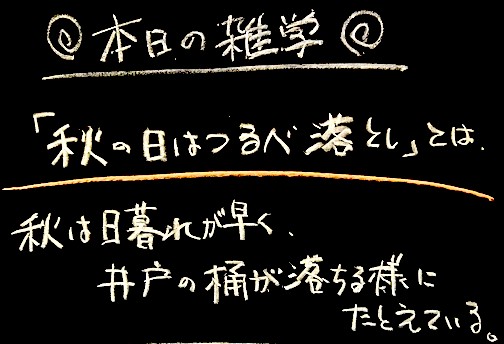 @ 本日の雑学 @
「秋の日はつるべ落とし」とは、
秋は日暮れが早く、
井戸の桶が落ちる様に
たとえている。